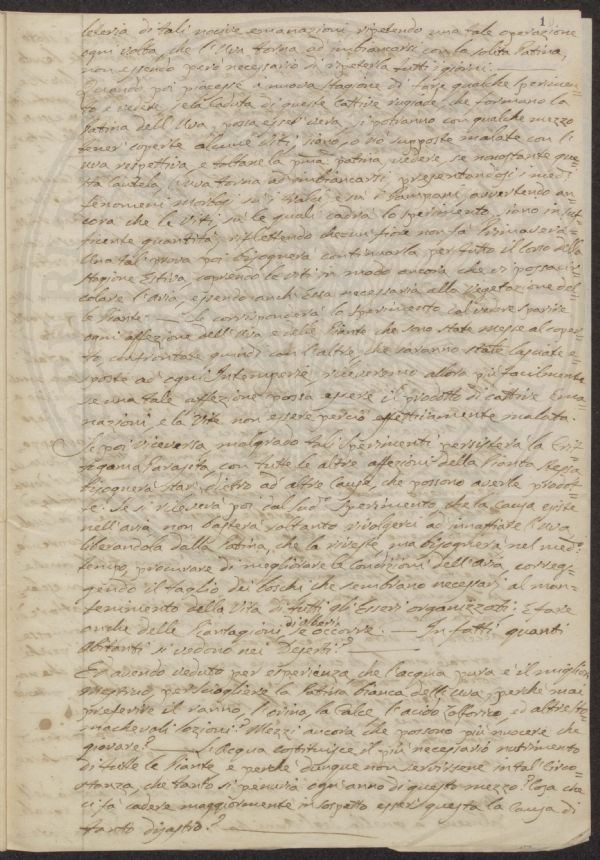 1
leteria di tali nocive emanazioni ripetendo una tale operazione
ogni volta, che l'Uva torna ad imbiancarsi con la solita Patina,
non essendo però necessario di ripeterla tutti i giorni. —
Quando poi piacesse a nuova Stagione di fare qualche Sperimen=
to e vedere, se la caduta di queste cattive rugiade, che formano la
Patina dell'Uva, possa esser vera, si potranno con qualche mezzo
tener coperte alcune Viti, siano, o nò supposte malate con l'
uva rispettiva, e toltane la pma. patina, vedere, se nonostante que=
sta cautela, l'uva torna ad imbiancarsi, presentandosi i med.i
fenomeni morbosi su i Tralci e su i Pampani, avvertendo an=
cora che le Viti su le quali cadrà lo sperimento, siano in suf=
ficente quantità, riflettendo che un fiore non fà Primavera.
Una tal prova poi bisognerà continuarla per tutto il Corso della
Stagione Estiva, coprendo le viti in modo ancora che vi possa cir=
colare l'aria, essendo anch'Essa necessaria alla Vegetazione del=
le Piante. — Se corrisponderà lo Sperimento col vedere sparire
ogni affezione dell'Uva e delle Piante che sono state messe al coper=
to confrontate quindi con l'altre, che saranno state lasciate e=
sposte ad ogni Intemperie, riceveremo allora più facilmente
se una tale affezione possa essere il prodotto di cattive Ema=
nazioni, e la Vite non essere perciò effettivamente malata.
Se poi viceversa malgrado tali Sperimenti persisterà la Crit=
togama Parasita, con tutte le altre affezioni della Pianta stessa
bisognerà star dietro ad altre Cause, che possono averle prodot=
te. Se si rileverà poi dal sud.o Sperimento, che la Causa esiste
nell'aria non basterà soltanto rivolgersi ad innaffiare l'Uva
liberandola dalla Patina, che la riveste ma bisognerà nel med.o
tempo, procurare di migliorare le Condizioni dell'aria, correg=
gendo il taglio dei boschi che sembrano necessarj al man=
tenimento della Vita di tutti gli Esseri organizzati; E fare
anche delle Piantagioni di alberi se occorre. — In fatti quanti
Abitanti si vedono nei Deserti? —
Ed avendo veduto per esperienza, che l'acqua pura è il miglior
Mestruo per isciogliere la Patina bianca dell'Uva, perchè mai
preferire il ranno, l'orina, la Calce, l'acido Zolforico, ed altre sto=
machevoli lozioni? Mezzi ancora che possono più nuocere che
giovare? — L'Acqua costituisce il più necessario nutrimento
di tutte le Piante e perchè dunque non servirsene in tal Circo=
stanza, che tanto si penuria ogni anno di questo mezzo? Cosa che
ci fà cadere maggiormente in sospetto esser questa la Causa di
tanto disastro? —